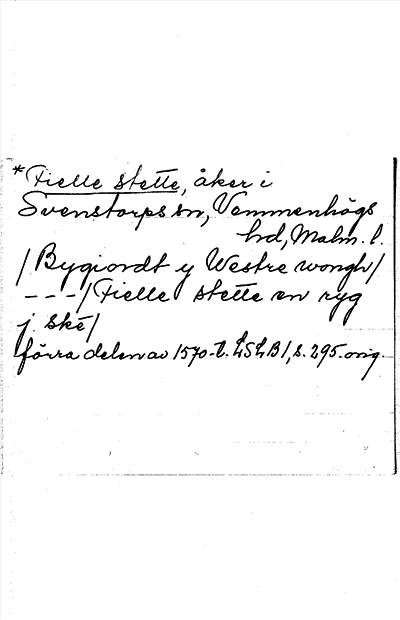 *Fielle stette, åker i
Svenstorps sn, Vemmenhögs
hd, Malm. l.
/Bygiordt y Westre wongh/
---/Fielle stette en ryg
j ske/
förra delen av 1570-t. LSLB1, s. 295. orig.